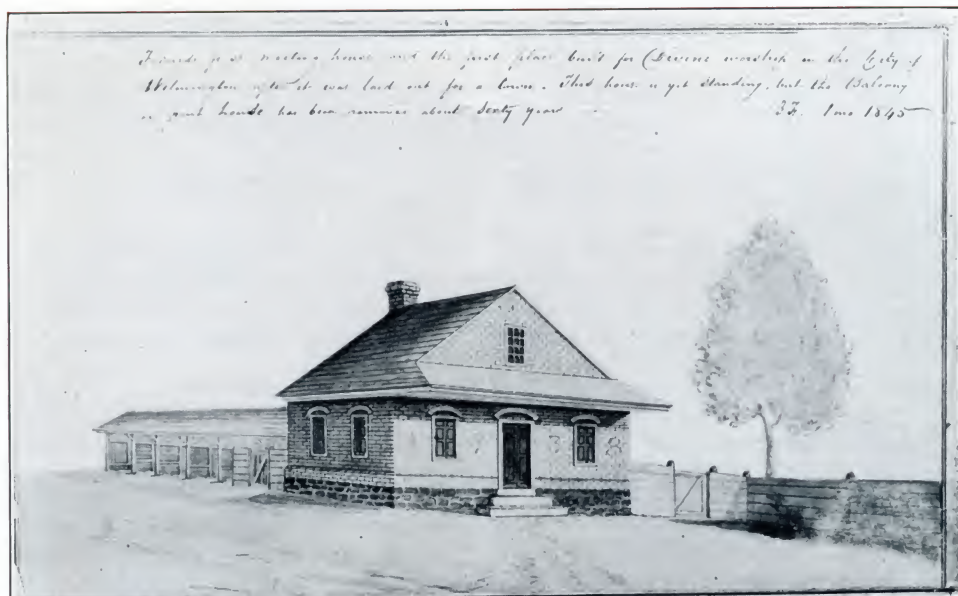 Friends first meeting house and the first place built for Devine worship in the City of
Wilmington after it was laid out for a town. This house is yet standing, but the Balcony
in front has been about Sixty years
1mo 1845